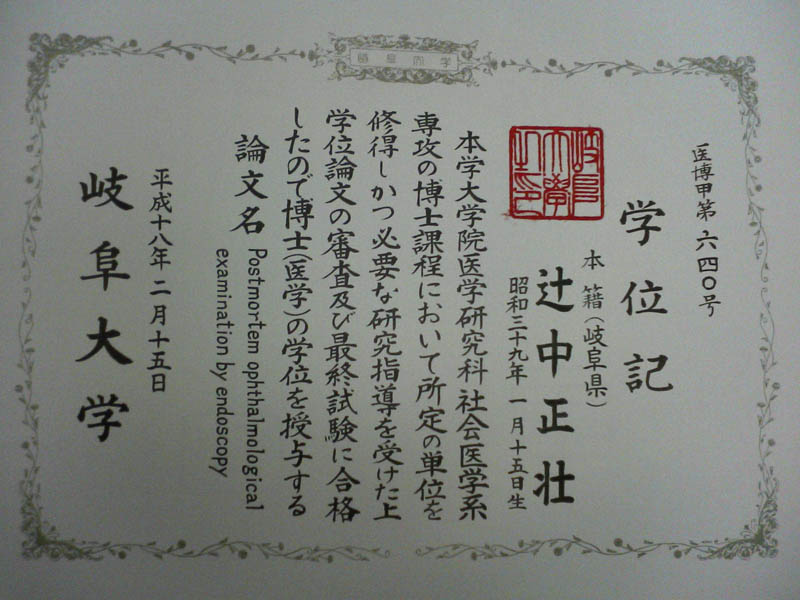 岐阜大学
医博甲第六四〇号
学位記
本籍(岐阜県)
辻中正壮
昭和三十九年一月十五日生
岐阜大学之印
本学大学院医学研究科社会医学系
専攻の博士課程において所定の単位を
修得しかつ必要な研究指導を受けた上
学位論文の審査及び最終試験に合格
したので博士(医学)の学位を授与する
論文名 Postmortem ophthalmological
examination by endoscopy
平成十八年二月十五日
岐阜大学